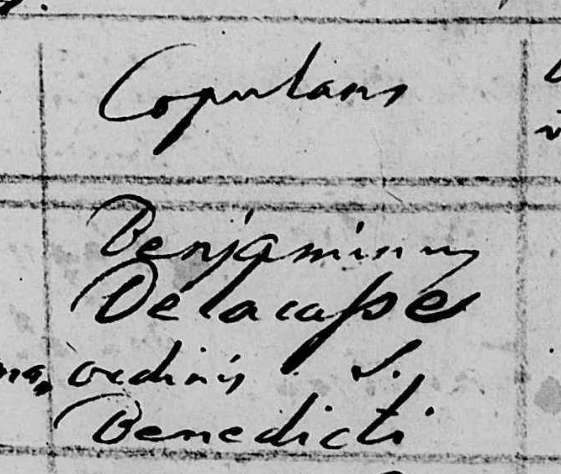 Copulans
Benjaminus
Delacasse
ordinis S.
Benedicti